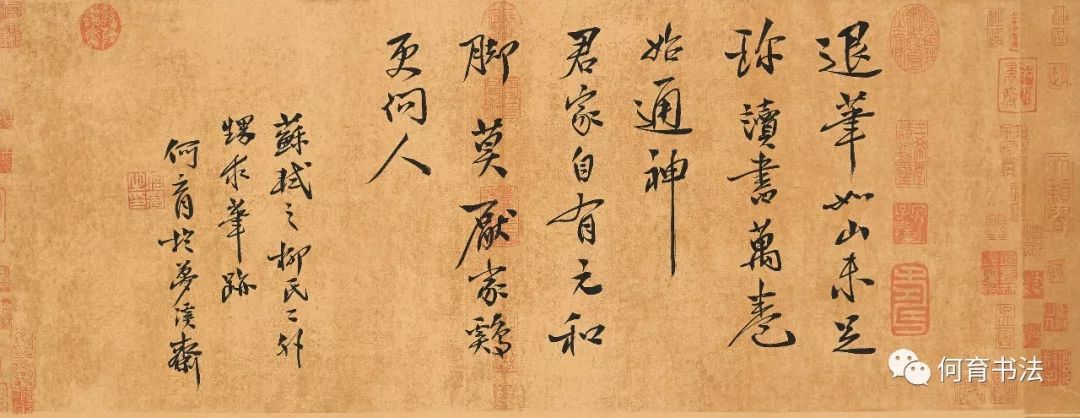 退筆如山未足
珎讀書萬卷
始通神
君家自有元和
脚莫厭家鷄
更问人
蘇軾之柳氏二外
甥求筆跡
何育於夢溪齋
何育书法